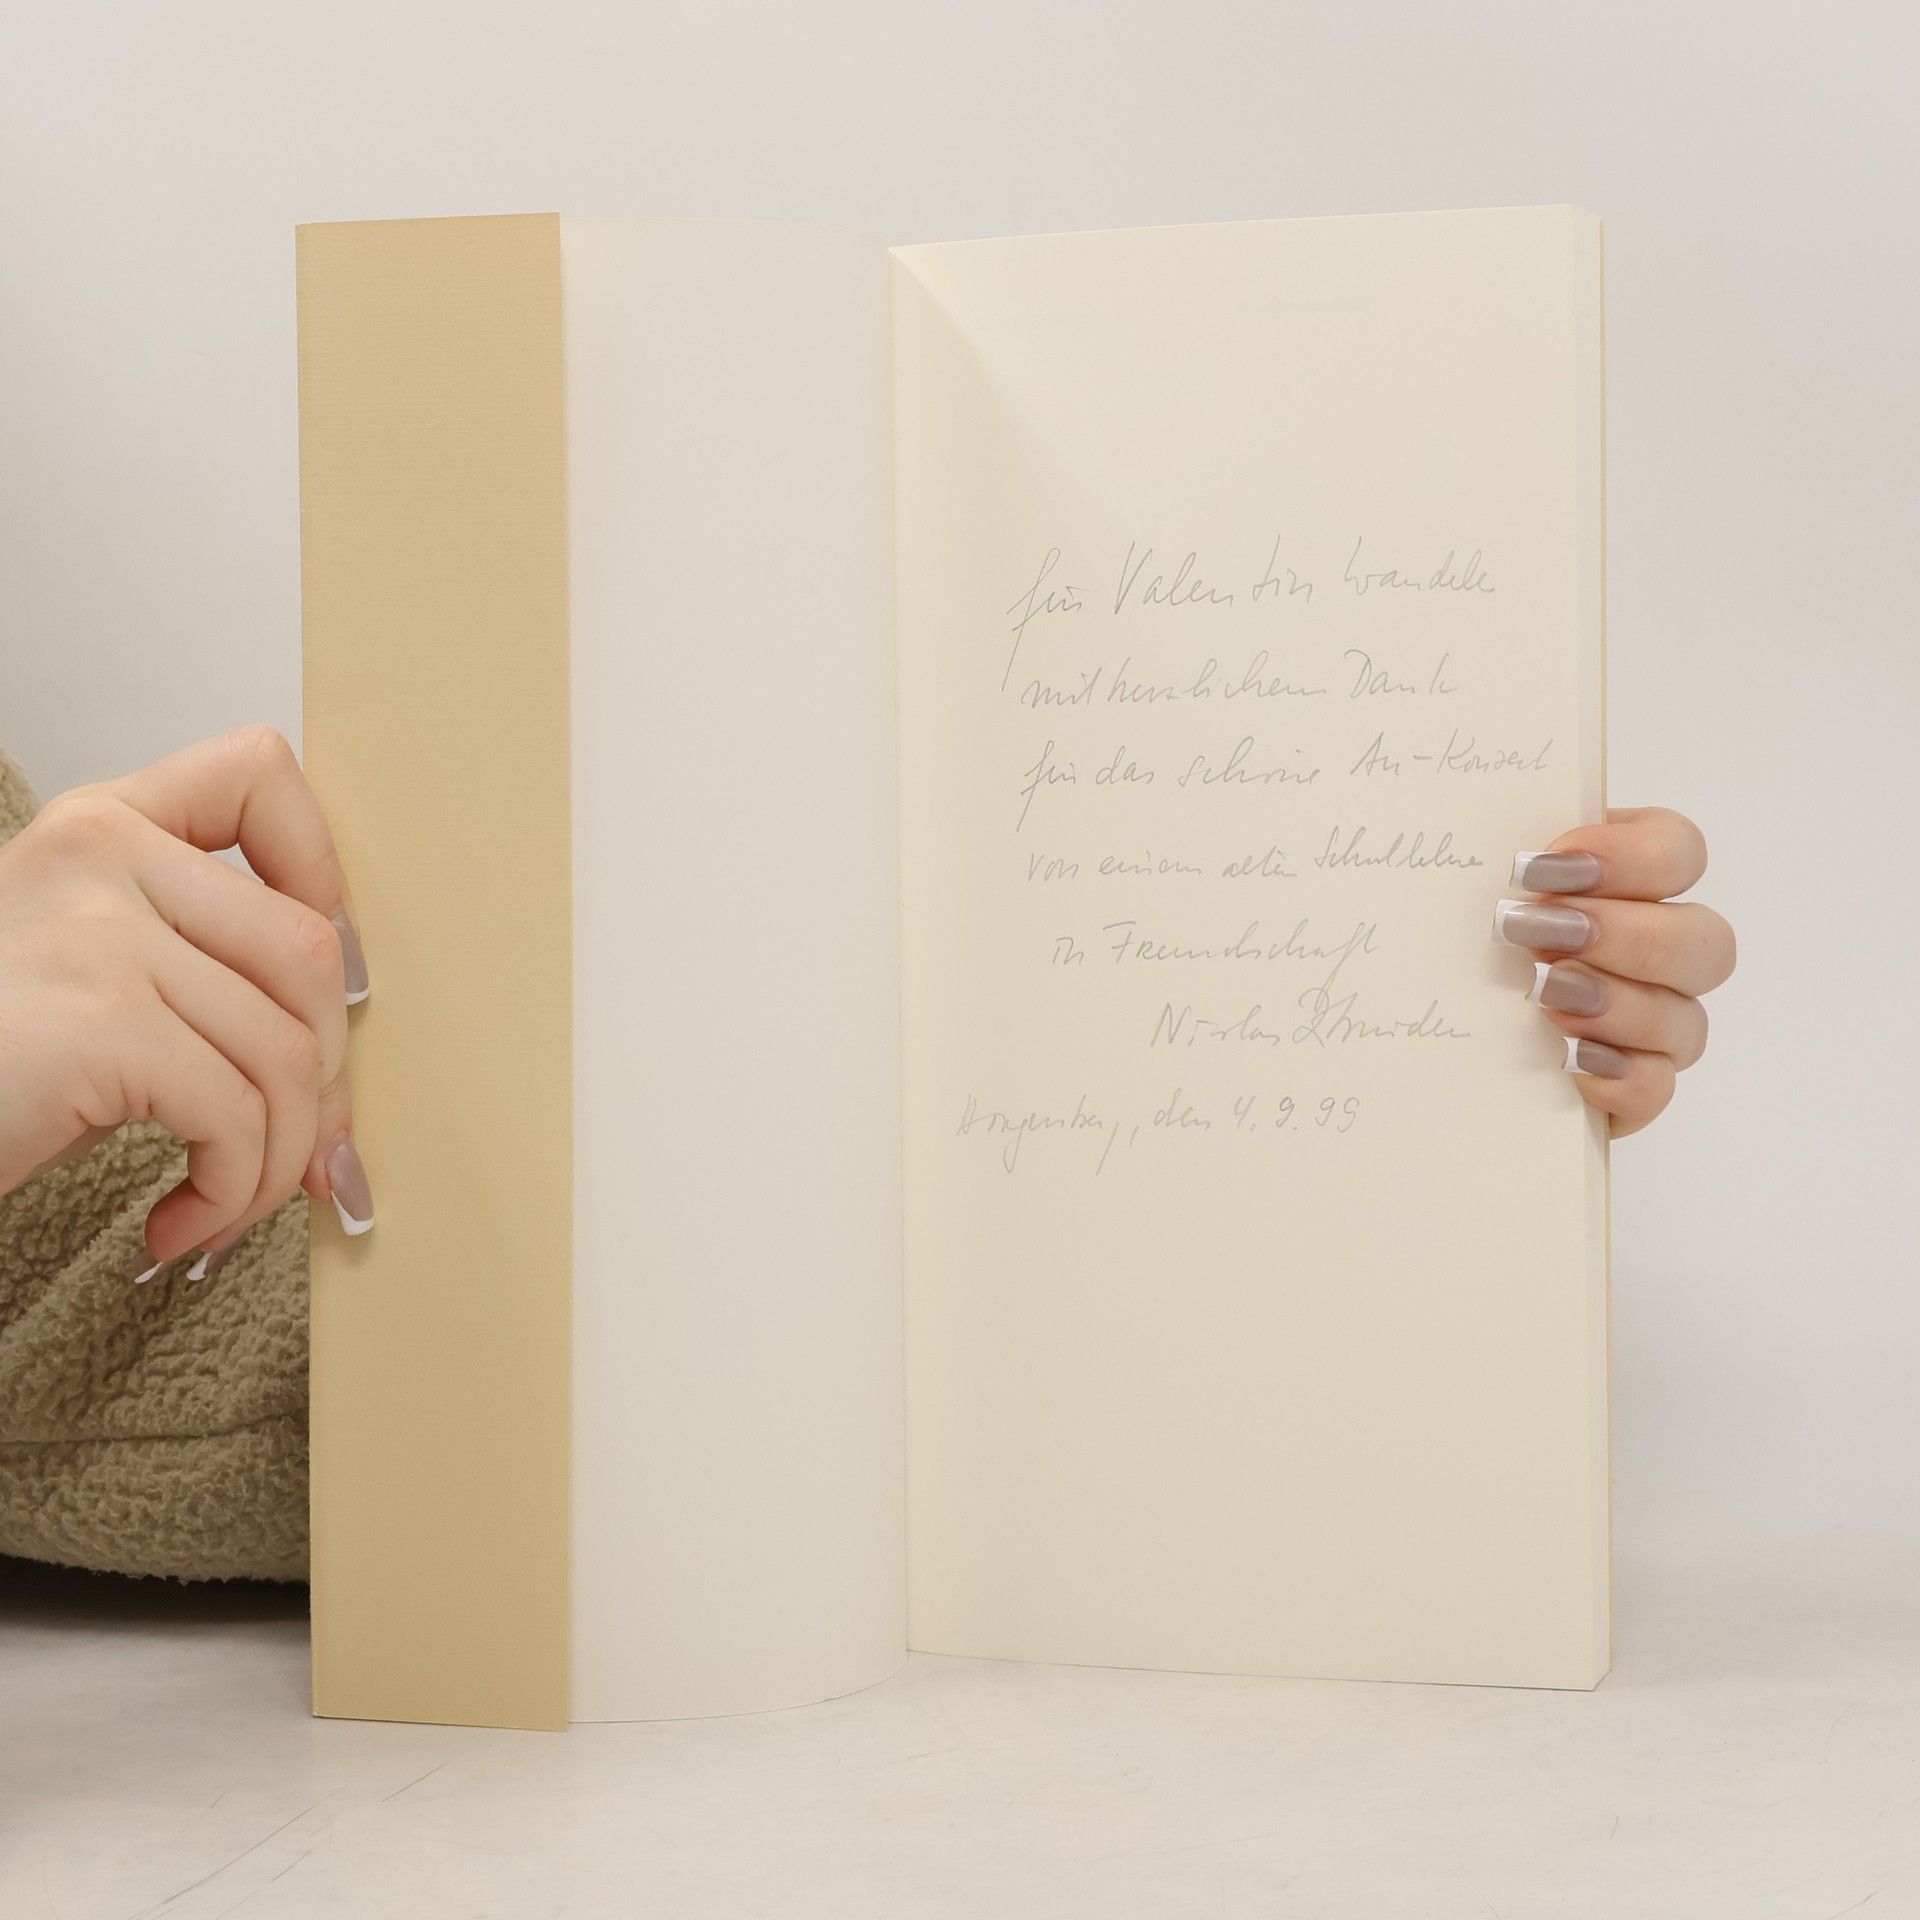 für Valentin Wandele
mit herzlichem Dank
für das schöne Au-Konzert
von einem alten Schullehrer
in Freundschaft
Nicolas
den 4. 9. 99